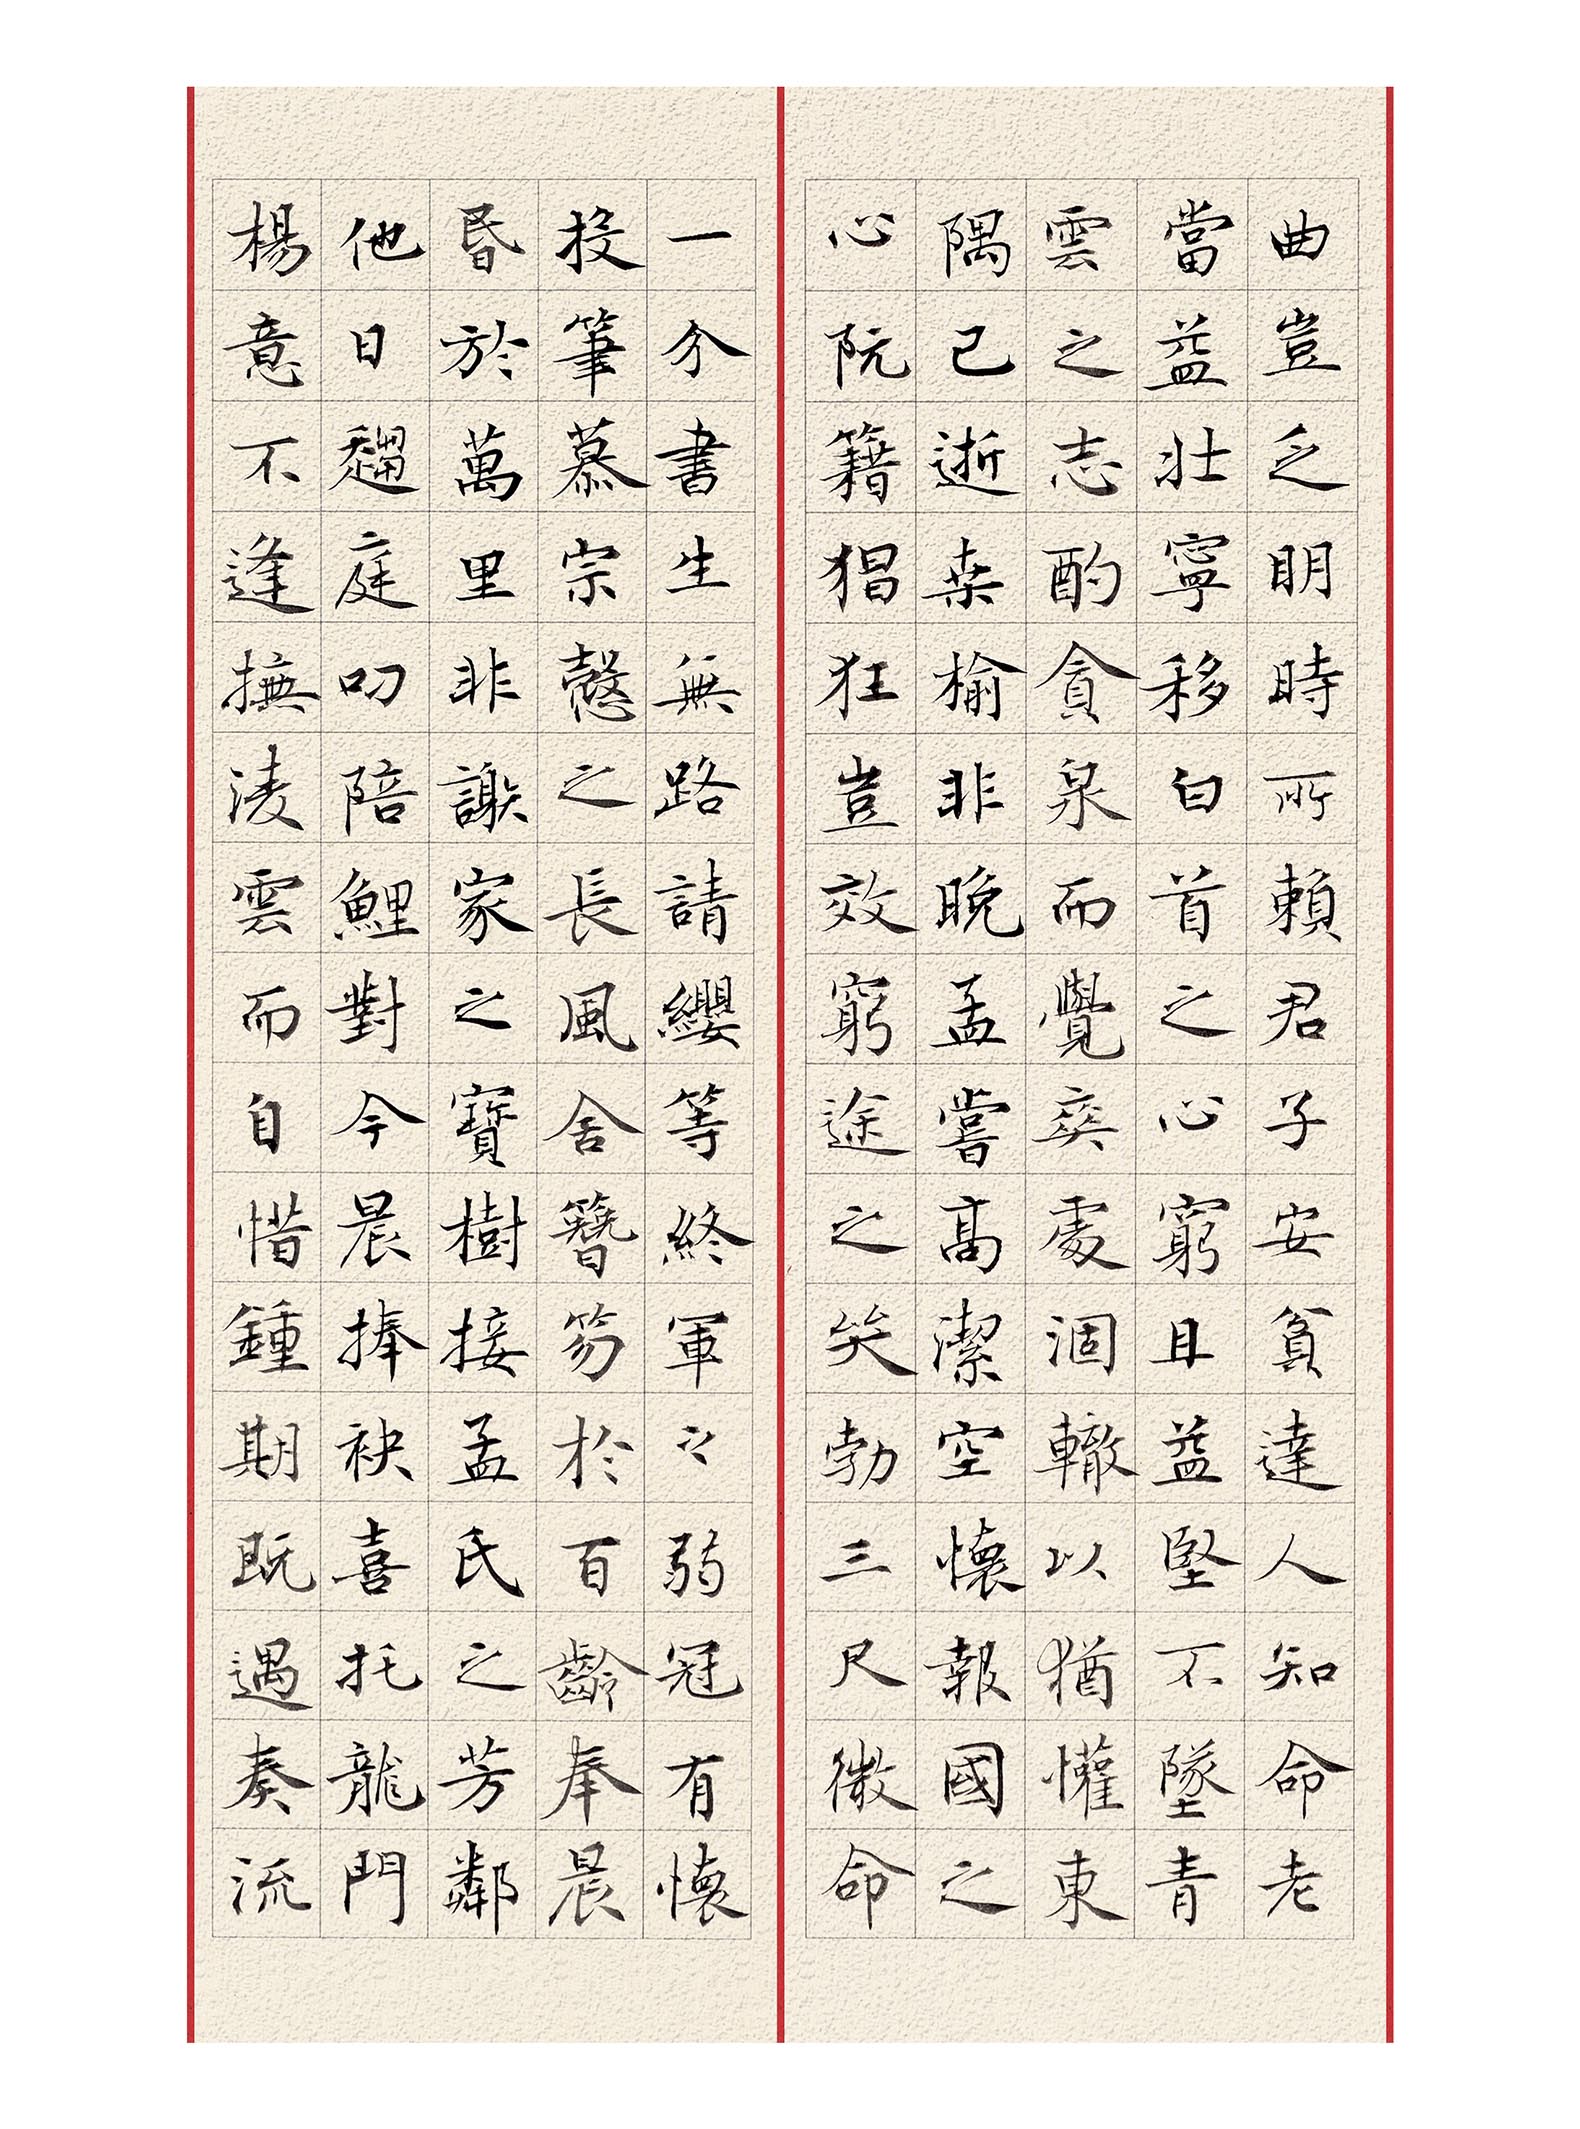 曲豈乏明時所賴君子安貧達人知命老
當益壯寧移白首之心窮且益堅不墜青
雲之志酌貪泉而覺爽處涸轍以猶懽東
隅已逝桒榆非晚孟嘗高潔空懷報國之
心阮籍猖狂豈效窮途之笑勃三尺微命
一介書生無路請纓等終軍之弱冠有懷
投筆慕宗慤之長風舍簪笏於百齡奉晨
昬於萬里非謝家之寶樹接孟氏之芳鄰
他日趨庭叨陪鯉對今晨捧袂喜托龍門
楊意不逢撫淩雲而自惜鍾期既遇奏流